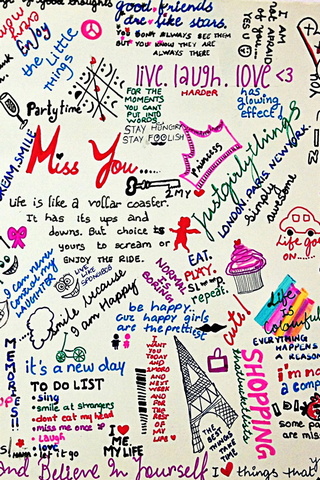 good thoughts
good friends
are like stars.
YOU DON'T ALWAYS SEE THEM
BUT YOU KNOW THEY ARE
ALWAYS THERE
Enjoy
the Little
THINGS
I AM
NOT AFRAID
OF YOU
YES U
live. laugh. love <3
HARDER
Party time
FOR THE
MOMENTS
YOU CANT
PUT INTO
WORDS
has
glowing
effect!
STAY HUNGRY
STAY FOOLISH
DREAM. SMILE
Miss You....
Princess
Justgirlythings
LONDON. PARIS. NEWYORK
simply
awesome
2 MY
Life is like a rollar coaster.
It has its ups and
downs. But choice is
yours to scream or
ENJOY THE RIDE.
Life goes
ON
I can never
control my
LAUGHTER
LIVE LIKE
SPONGEBOB
NORMAL
IS
BORING
EAT.
PLAY.
SLEEP
repeat.
Smile because
I am Happy
be happy..
cuz happy girls
are the prettiest
cute!
Life
is
Colourful
EVERYTHING
HAPPENS
A REASON
MEMORIES!!
it's a new day
TO DO LIST
sing
smile at strangers
dont eat my head
miss me once :P
laugh
love
let it go
I ME.
MY LIFE
I WANT
YOU TODAY
AND
TOMORROW
AND NEXT
WEEK
AND FOR
THE REST
OF MY
LIFE
THE BEST
THINGS
TAKE
TIME
SHOPPING
i'm no
a comp
some pa
are mis
And Believe In Yourself
I things that